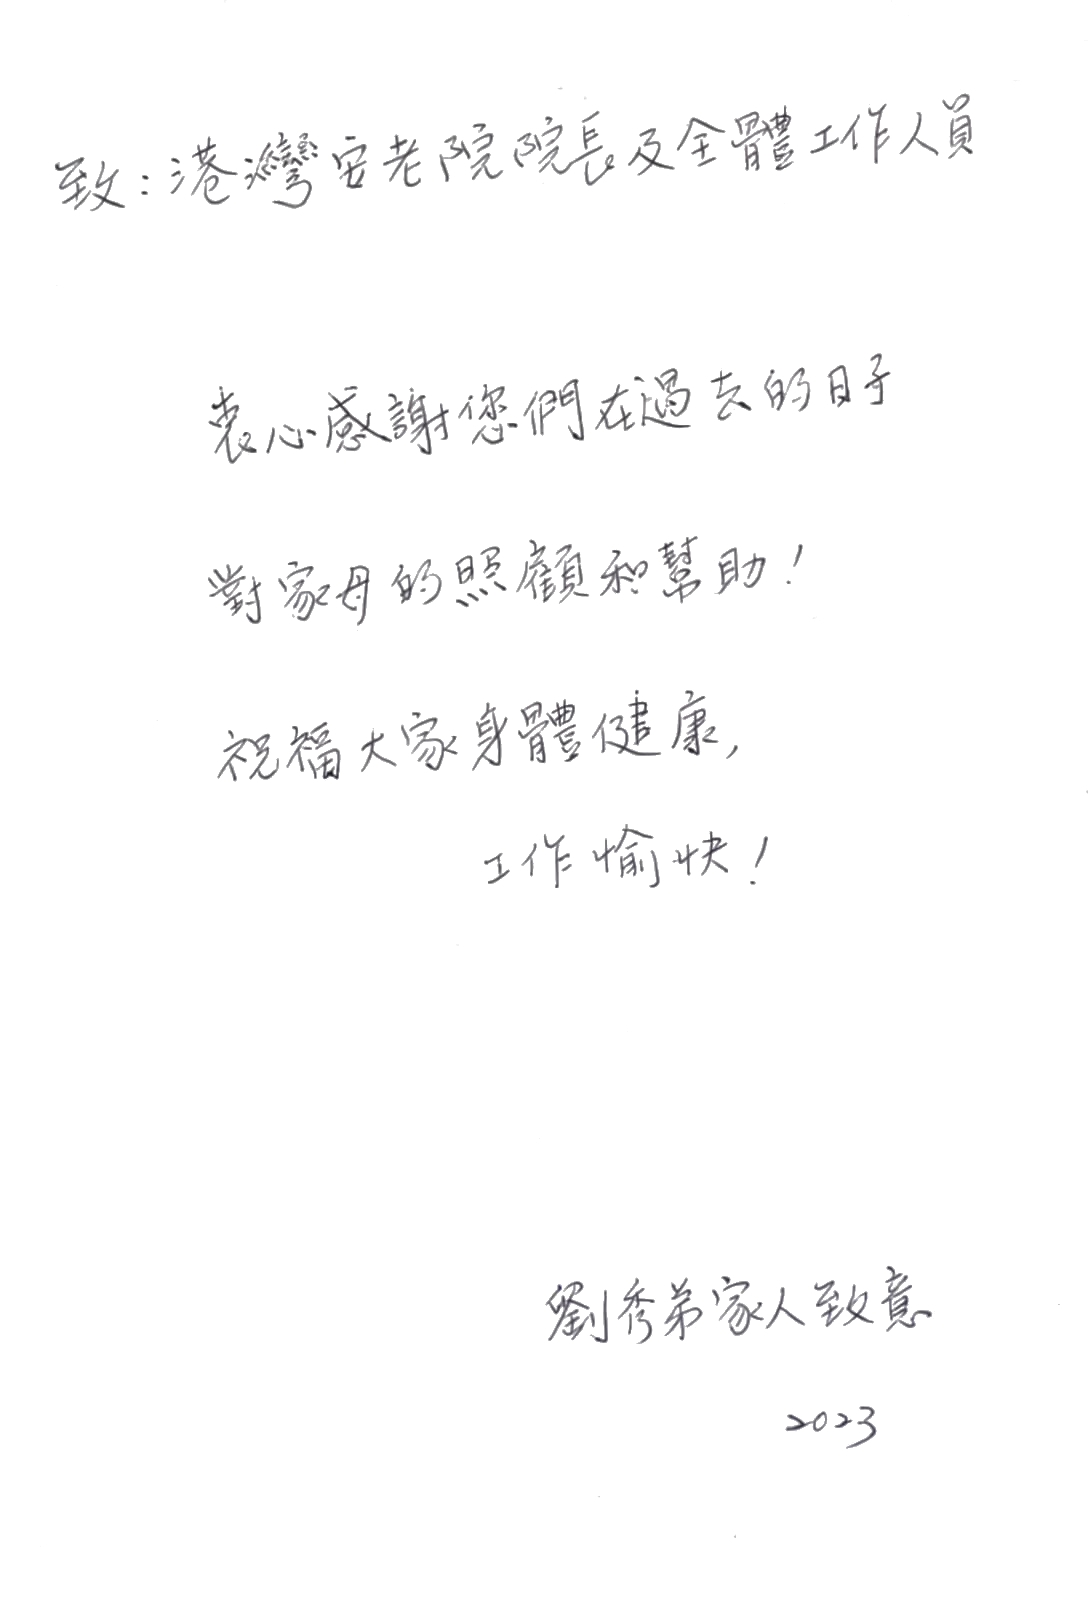 致：港灣安老院院長及全體工作人員
衷心感謝您們在過去的日子
對家母的照顧和幫助！
祝福大家身體健康，
工作愉快！
劉秀弟家人致意
2023